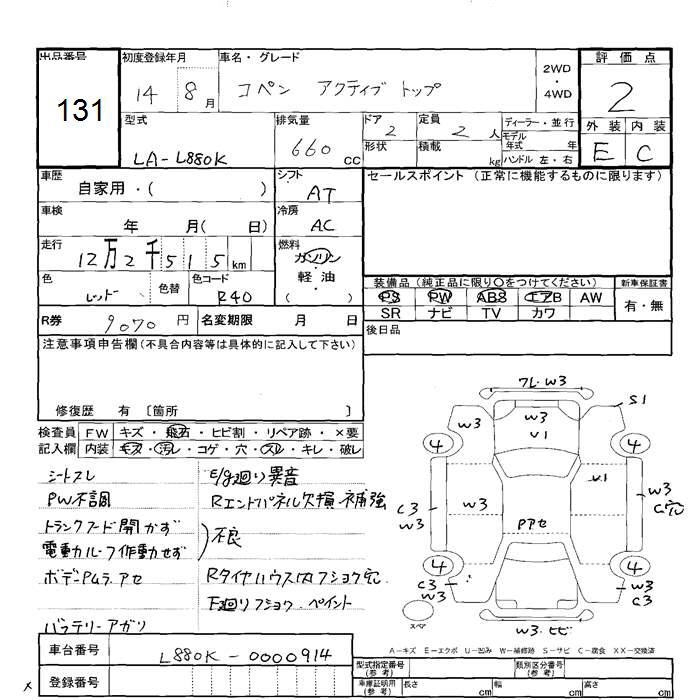 出品番号 初度登録年月 車名・グレード 評価点
131
14 8月 コペン アクティブ トップ 2WD ・ 4WD 2
型式 排気量 ドア 定員 ディーラー・並行 外装 内装
LA-L880K 660 cc 2 2人 モデル年式 年 E C
形状 積載 kg ハンドル 左・右
車歴 シフト セールスポイント (正常に機能するものに限ります)
自家用・( ) AT
車検 年 月( 日) 冷房 AC
走行 12万2千515km 燃料 ガソリン 軽・油 ( )
色 レッド 色替 色コード R40
装備品 (純正品に限り〇をつけてください) 新車保証書
PS PW ABS エアB AW 有・無
SR ナビ TV カワ
R券 9070円 名変期限 月 日 後日品
注意事項申告欄(不具合内容等は具体的に記入して下さい)
修復歴 有 [箇所 ]
検査員 FW キズ・飛石・ヒビ割・リペア跡・×要
記入欄 内装 コゲ・穴・スレ・キレ・破レ
シートスレ E/g廻り異音
PW不調 Rエンドパネル欠損 補強
トランクフード開かず
電動ルーフ作動せず 不良
ボデーPムラ アセ Rタイヤハウス内フショク穴
下廻りフショク ペイント
バッテリーアガリ
フレ・W3
W3 W3 U1 S1
4 4
C3 W3 W3 PPアセ U1 W3 C穴
4 4
C3 W3 W3 C3
スペア W3・ヒビ
A-キズ E-エクボ U-凹み W-補修跡 S-サビ C-腐食 XX-交換済
車台番号 L880K-0000914
登録番号
型式指定番号(参考) 類別区分番号(参考)
車庫証明用(参考) 長さ cm 幅 cm 高さ cm